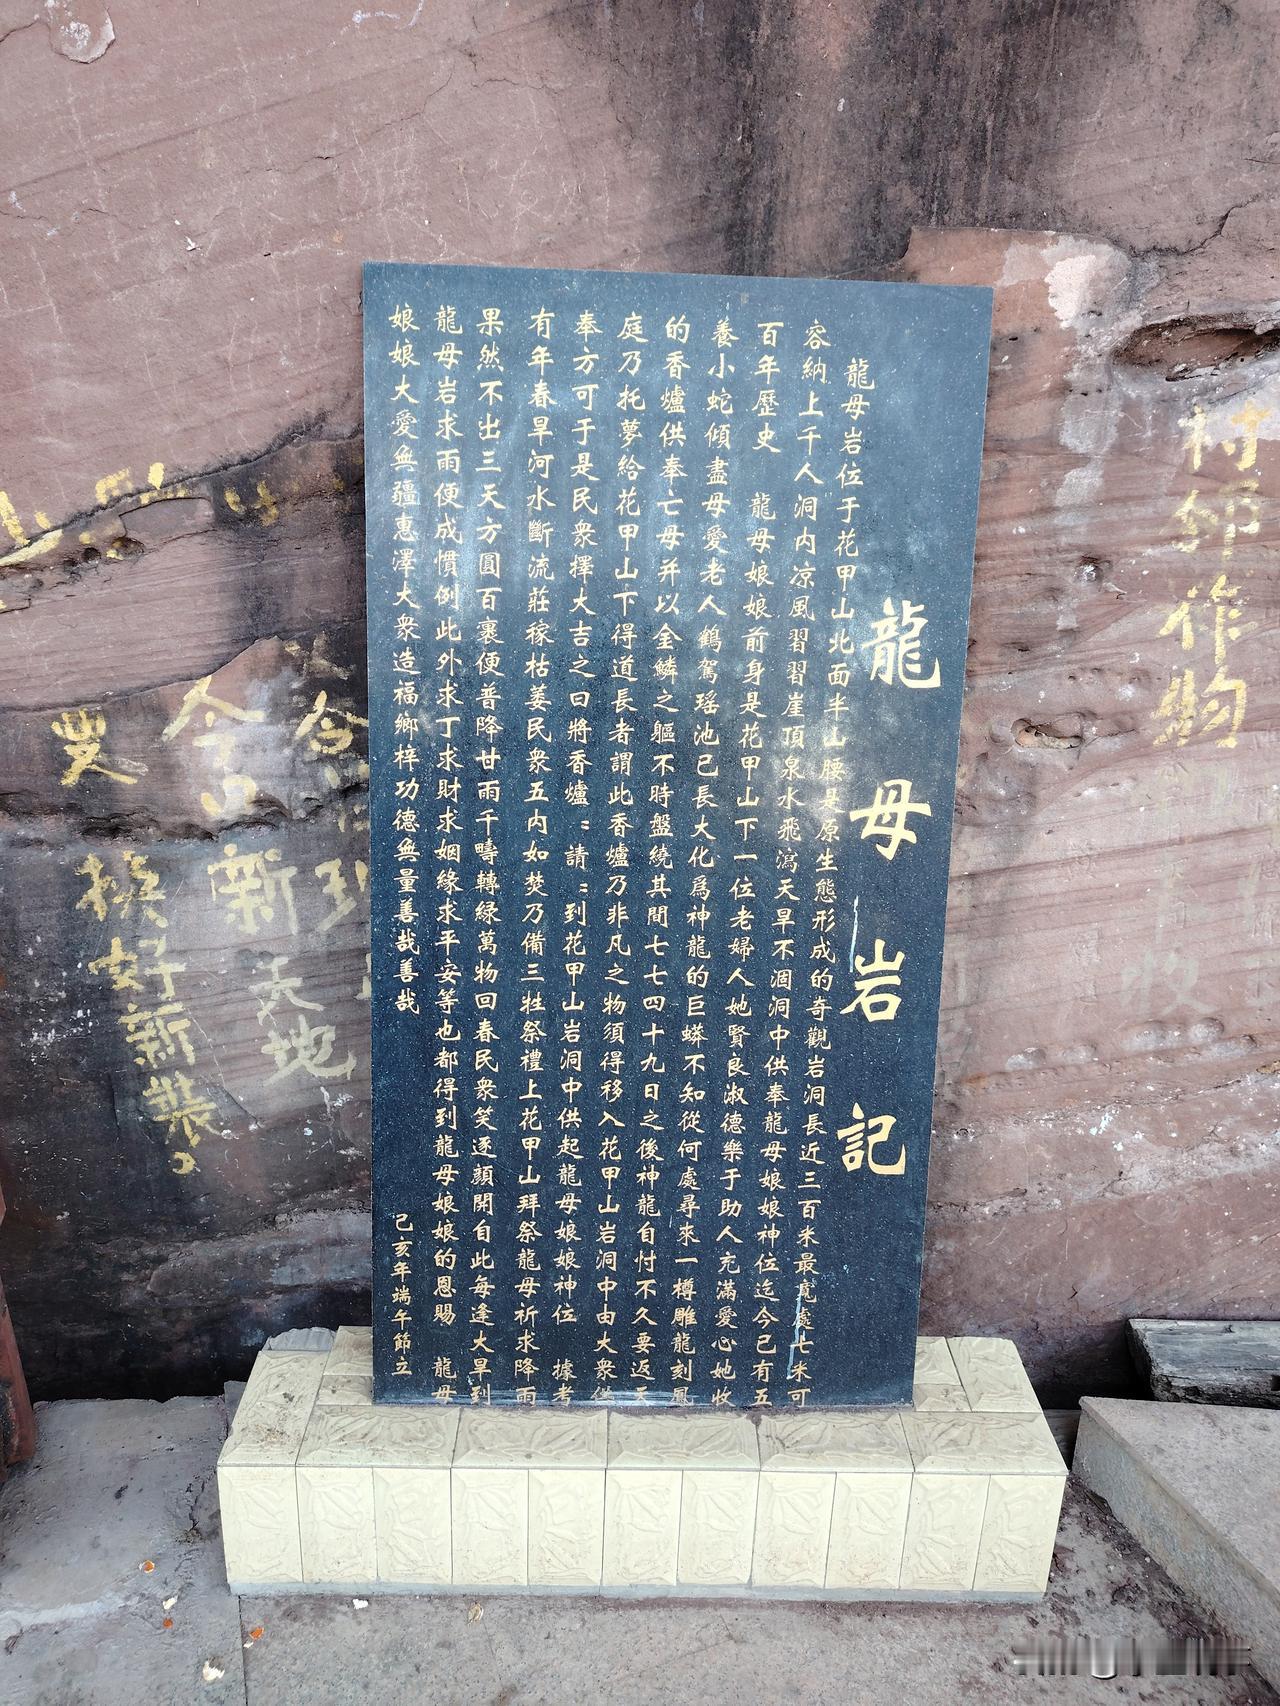 龍母岩記
龍母岩位于花甲山北面半山腰是原生態形成的奇觀岩洞長近三百米最寬處七米可
容納上千人洞内凉風習習崖頂泉水飛瀉天旱不涸洞中供奉龍母娘娘神位迄今已有五
百年歷史 龍母娘娘前身是花甲山下一位老婦人她賢良淑德樂于助人充滿愛心她收
養小蛇傾盡母愛老人鶴駕瑶池已長大化爲神龍的巨蟒不知從何處尋來一樽雕龍刻鳳
的香爐供奉亡母并以金鱗之軀不時盤繞其間七七四十九日之後神龍自忖不久要返天
庭乃托夢給花甲山下得道長者謂此香爐乃非凡之物須得移入花甲山岩洞中由大衆供
奉方可于是民衆擇大吉之日將香爐：請：到花甲山岩洞中供起龍母娘娘神位 據考
有年春旱河水斷流莊稼枯萎民衆五内如焚乃備三牲祭禮上花甲山拜祭龍母祈求降雨
果然不出三天方圓百裏便普降甘雨千疇轉緑萬物回春民衆笑逐顔開自此每逢大旱到
龍母岩求雨便成慣例此外求丁求財求姻緣求平安等也都得到龍母娘娘的恩賜 龍母
娘娘大愛無疆惠澤大衆造福鄉梓功德無量善哉善哉
己亥年端午節立
村邻作物
令山新天地
換好新裝